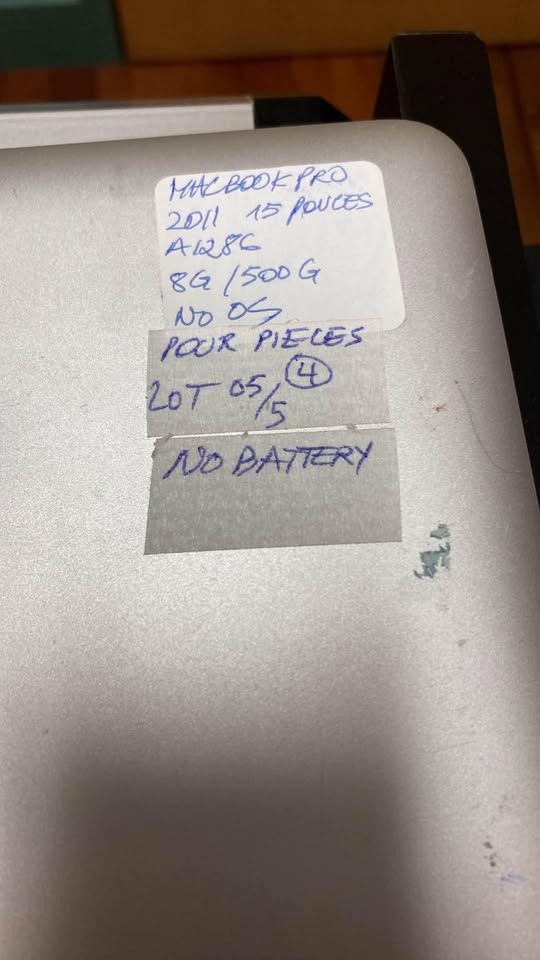 MACBOOK PRO
2011 15 POUCES
A1286
8G / 500 G
NO OS
POUR PIECES
LOT 05/5 4
NO BATTERY